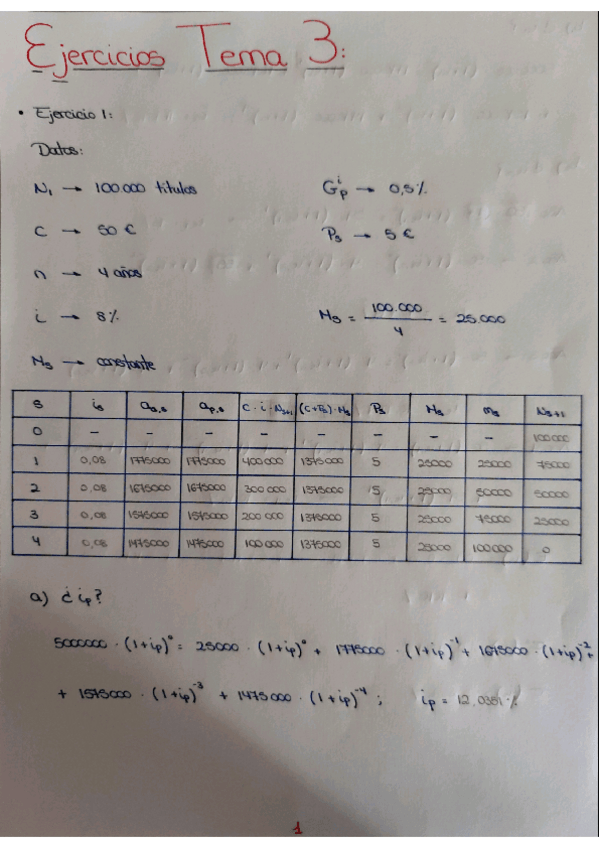 Ejercicios Tema 3:
• Ejercicio 1:
Datos:
N₁ → 100.000 títulos
Gᵢₚ → 0,5%
C → 50 €
Pₛ → 5 €
n → 4 años
i → 8%
Mₛ = 100.000 / 4 = 25.000
Mₛ → constante
S iₛ aₐ,ₛ aₚ,ₛ C · i · Nₛ₊₁ (C+Pₛ) · Mₛ Pₛ Mₛ mₛ Nₛ₊₁
0 – – – – – – – – 100000
1 0,08 1775000 1775000 400000 1375000 5 25000 25000 75000
2 0,08 1675000 1675000 300000 1375000 5 25000 50000 50000
3 0,08 1575000 1575000 200000 1375000 5 25000 75000 25000
4 0,08 1475000 1475000 100000 1375000 5 25000 100000 0
a) ¿ iₚ?
5000000 · (1+iₚ)⁰ = 25000 · (1+iₚ)⁰ + 1775000 · (1+iₚ)⁻¹ + 1675000 · (1+iₚ)⁻² +
+ 1575000 · (1+iₚ)⁻³ + 1475000 · (1+iₚ)⁻⁴ ; iₚ = 12,0381 %
1